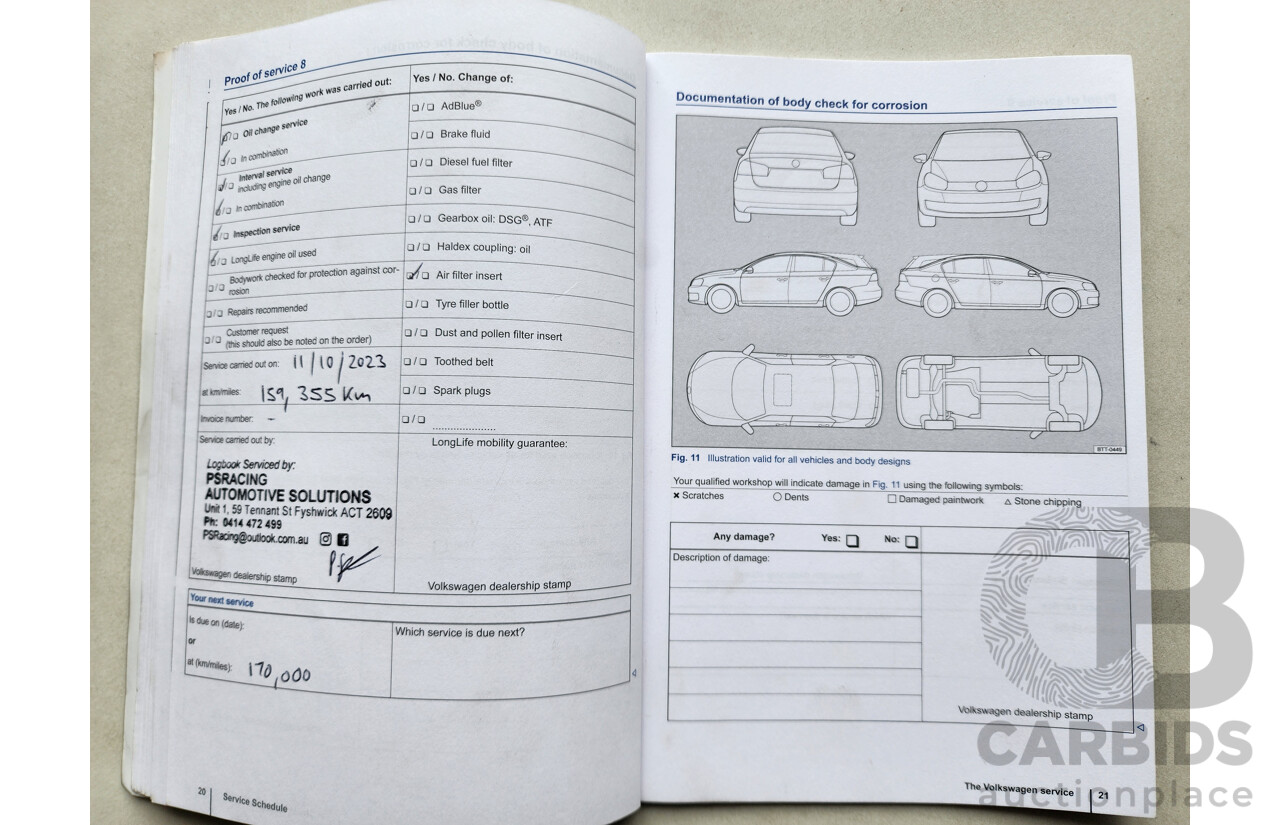 Proof of service 8
Yes / No. The following work was carried out:
❏ / ❏ Oil change service
❏ / ❏ In combination
❏ / ❏ Interval service
including engine oil change
❏ / ❏ In combination
❏ / ❏ Inspection service
❏ / ❏ LongLife engine oil used
❏ / ❏ Bodywork checked for protection against cor-
rosion
❏ / ❏ Repairs recommended
❏ / ❏ Customer request
(this should also be noted on the order)
Service carried out on: 11/10/2023
at km/miles: 159,355 Km
Invoice number: -
Service carried out by:
Logbook Serviced by:
PSRACING
AUTOMOTIVE SOLUTIONS
Unit 1, 59 Tennant St Fyshwick ACT 2609
Ph: 0414 472 499
PSRacing@outlook.com.au
Volkswagen dealership stamp
Yes / No. Change of:
❏ / ❏ AdBlue®
❏ / ❏ Brake fluid
❏ / ❏ Diesel fuel filter
❏ / ❏ Gas filter
❏ / ❏ Gearbox oil: DSG®, ATF
❏ / ❏ Haldex coupling: oil
❏ / ❏ Air filter insert
❏ / ❏ Tyre filler bottle
❏ / ❏ Dust and pollen filter insert
❏ / ❏ Toothed belt
❏ / ❏ Spark plugs
❏ / ❏ .....................
LongLife mobility guarantee:
Volkswagen dealership stamp
Your next service
Is due on (date):
or
at (km/miles): 170,000
Which service is due next?
20 Service Schedule
Documentation of body check for corrosion
BTT-0449
Fig. 11 Illustration valid for all vehicles and body designs
Your qualified workshop will indicate damage in Fig. 11 using the following symbols:
× Scratches ○ Dents □ Damaged paintwork △ Stone chipping
Any damage? Yes: ❏ No: ❏
Description of damage:
Volkswagen dealership stamp
The Volkswagen service 21
CB
CARBIDS
auctionplace